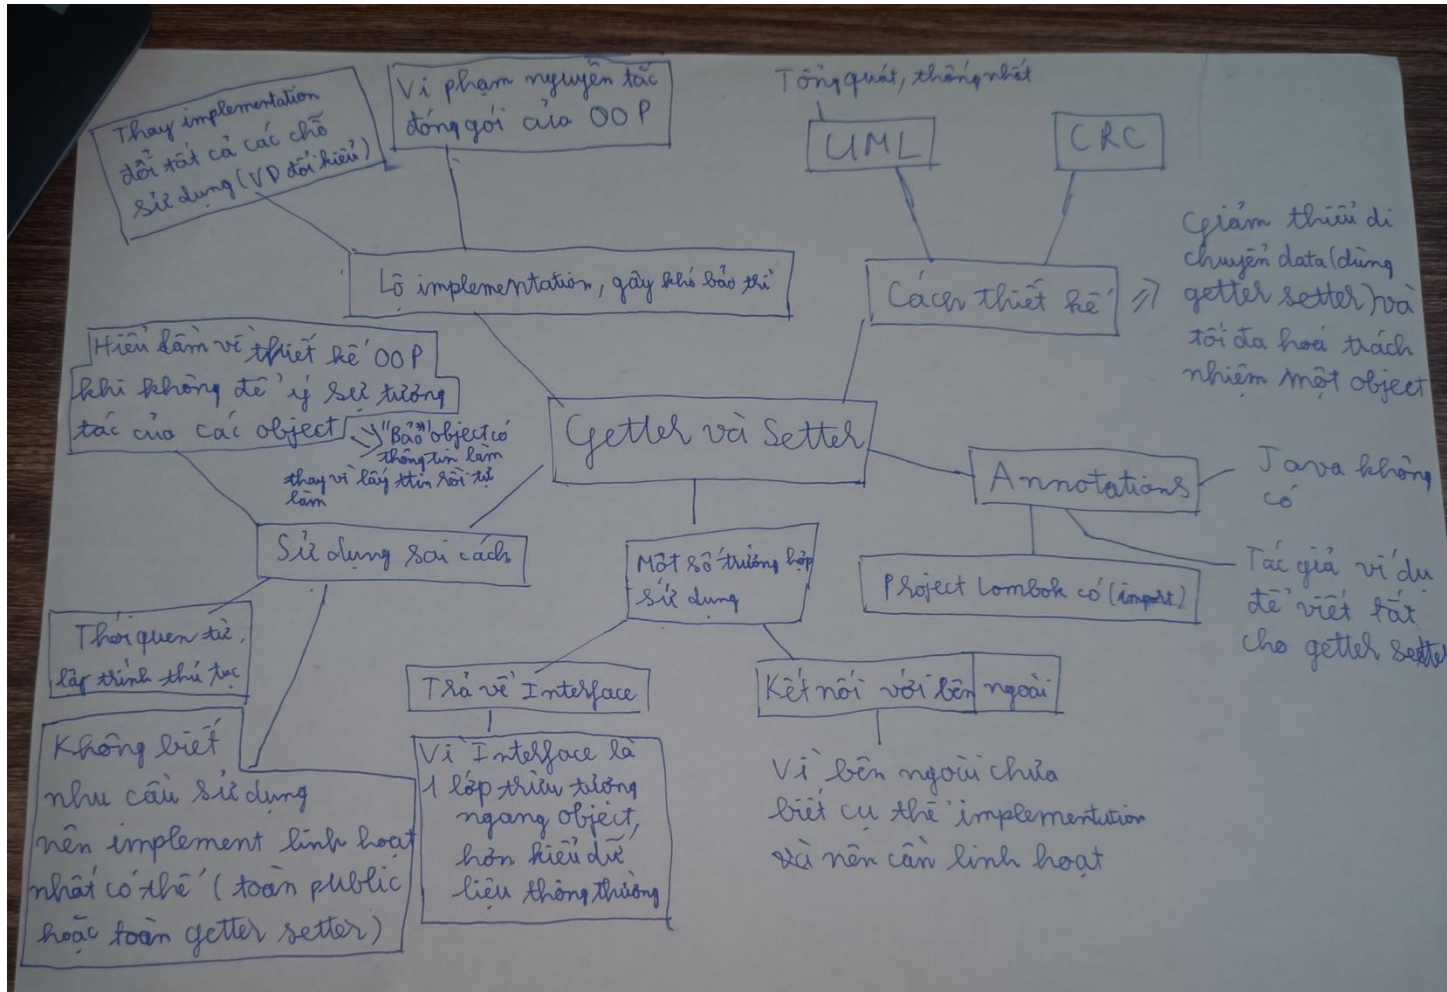 Thay implementation
đổi tất cả các chỗ
sử dụng (VD đổi kiểu)
Vi phạm nguyên tắc
đóng gói của OOP
Tổng quát, thống nhất
UML
CRC
Lộ implementation, gây khó bảo trì
Cách thiết kế =>
Giảm thiểu di
chuyển data (dùng
getter setter) và
tối đa hoá trách
nhiệm một object
Hiểu lầm về thiết kế OOP
khi không để ý sự tương
tác của các object
"Bảo" object có
thông tin làm
thay vì lấy ttin rồi tự
làm
Getter và Setter
Annotations
Java không
có
Sử dụng sai cách
Một số trường hợp
sử dụng
Project Lombok có (import)
Tác giả ví dụ
để viết tắt
cho getter setter
Thói quen từ
lập trình thủ tục
Trả về Interface
Kết nối với bên ngoài
Không biết
nhu cầu sử dụng
nên implement linh hoạt
nhất có thể (toàn public
hoặc toàn getter setter)
Vì Interface là
1 lớp trừu tượng
ngang object,
hơn kiểu dữ
liệu thông thường
Vì bên ngoài chưa
biết cụ thể implementation
và nên cần linh hoạt